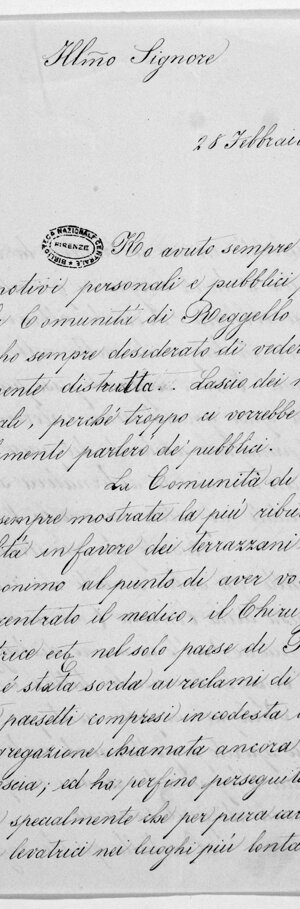 Illmo Signore
28 Febbrai
BIBLIOTECA NAZIONALE CENTRALE
FIRENZE
Ho avuto sempre
motivi personali e pubblici
Comunità di Reggello
ho sempre desiderato di veder
mente distrutta. Lascio dei
ali, perché troppo ci vorrebbe
lmente parlerò de' pubblici.
La Comunità di
sempre mostrata la più ribu
ltà in favore dei terrazzani
onimo al punto di aver vo
centrato il medico, il Chiru
trice ect. nel solo paese di
é stata sorda ai reclami di
paesetti compresi in codesta
gregazione chiamata ancora
scia; ed ha perfino perseguita
specialmente che per pura car
levatrici nei luoghi più lonta